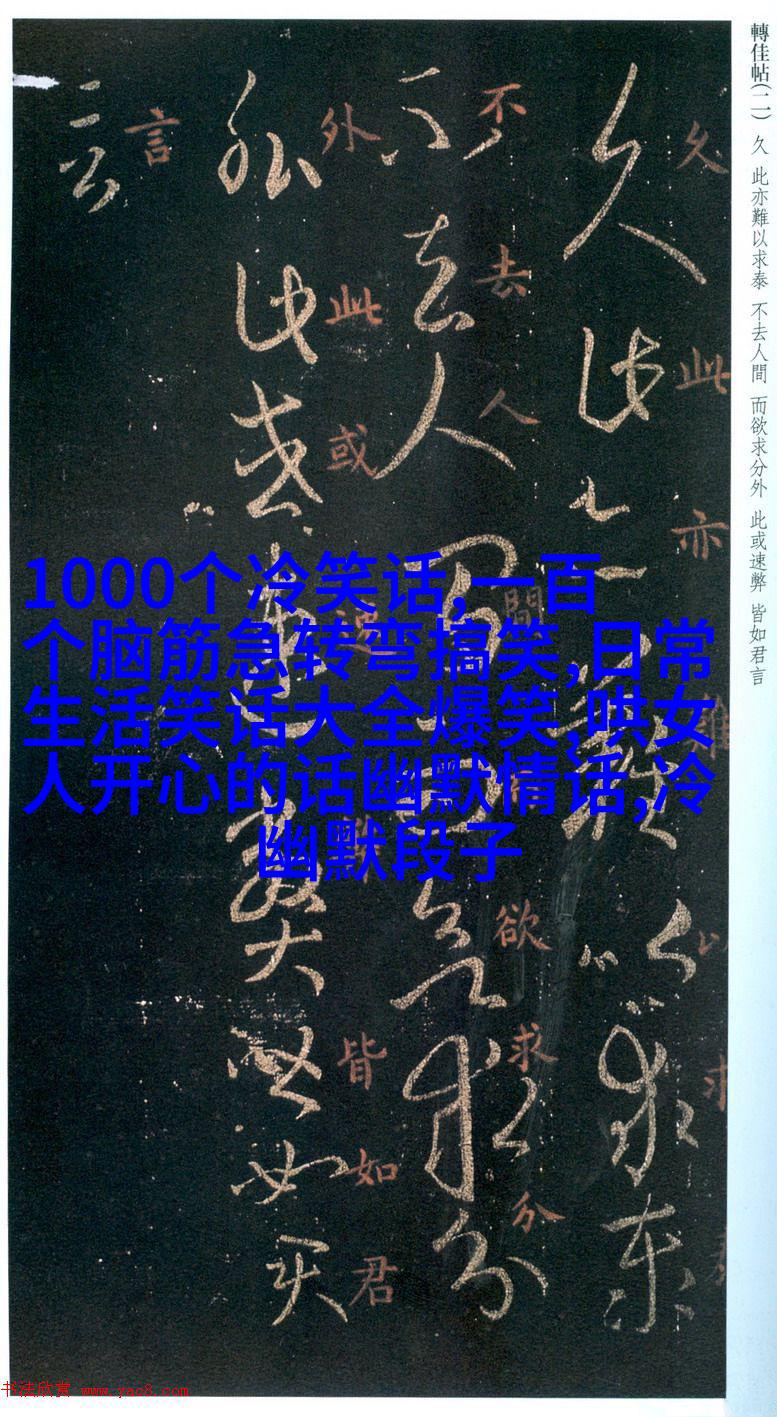 轉佳帖(二) 久 此亦難以求泰 不去人間 而欲求分外 此或速弊 皆如君言
久此亦難以求
不去人間欲求分
外此或速皆如君
言
1000个冷笑话,一百
个脑筋急转弯搞笑,日常
生活笑话大全爆笑,哄女
人开心的话幽默情话,冷
幽默段子
书法欣赏 www.yac8.com